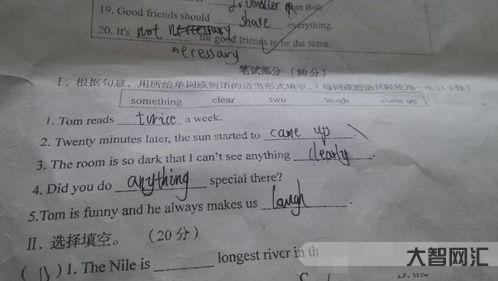 19. Good friends should share everything.
20. It's not necessary for good friends to be the same.
necessary
笔试部分 (80分)
I. 根据句意,用所给单词或短语的适当形式填空。(每词或短语只限使用一次)
something clear two laugh come up
1. Tom reads twrice a week.
2. Twenty minutes later, the sun started to came up.
3. The room is so dark that I can't see anything clearly.
4. Did you do anything special there?
5.Tom is funny and he always makes us laugh.
II. 选择填空。 (20分)
1. The Nile is ______ longest river in th
大智网汇